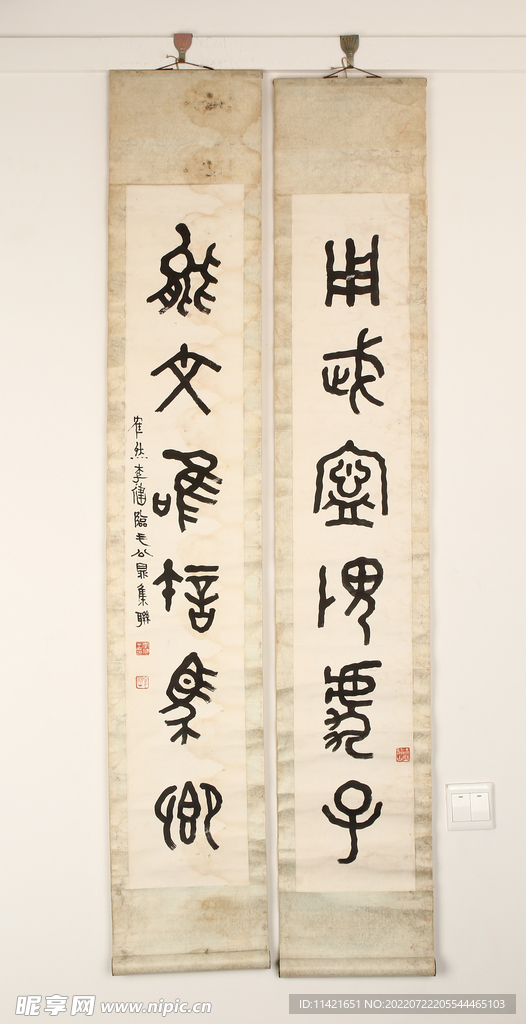 用武寍子
能文唯集卿
隺然李健臨毛公鼎集聯
昵享网 www.nipic.cn
ID:11421651 NO:20220722205544465103